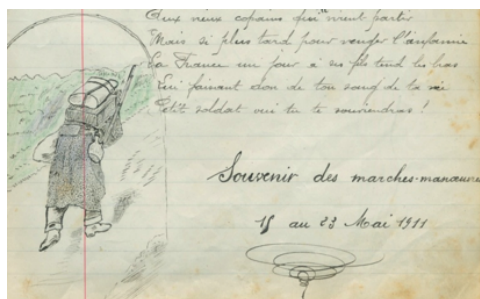 Deux vieux copains qui vont partir
Mais si plus tard pour venger l'infamie
La France un jour à ses fils tend les bras
En faisant don de ton sang de ta vie
Petit soldat oui tu te souviendras !
Souvenir des marches-manœuvres
15 au 23 Mai 1911